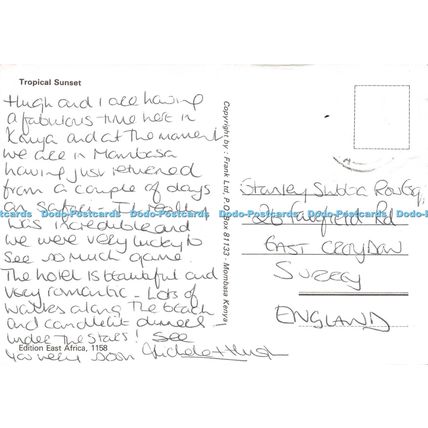 Tropical Sunset
Hugh and I are having
a fabulous time here in
Kenya and at the moment
we are in Mombasa
having just returned
from a couple of days
on Safari. It really
was incredible and
we were very lucky to
see so much game.
The hotel is beautiful and
very romantic - Lots of
walks along the beach
and candlelit dinners -
under the stars! See
you very soon Michele + Hugh
Edition East Africa, 1158
Copyright by : Frank Ltd, P.O. Box 81133 - Mombasa Kenya
Stanley Esq,
26 Fairfield Rd
EAST CROYDON
SURREY
ENGLAND
Dodo-Postcards Dodo-Postcards Dodo-Postcards Dodo-Postcards